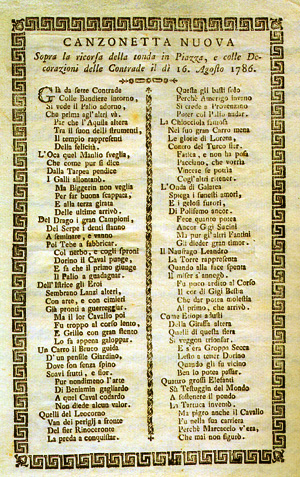 CANZONETTA NUOVA
Sopra la ricorsa della tonda in Piazza, e colle De-
corazioni delle Contrade il dì 16. Agosto 1786.
Già da sette Contrade
Colle Bandiere intorno,
Si vede il Palio adorno,
Che prima agl'altri và.
Per che l'Aquila altera
Tra il suon delli strumenti,
Il tempio rappresenti
Della felicità.
L'Oca quel Manlio sveglia,
Che come pur si dice
Dalla Tarpea pendice
I Galli allontanò.
Ma Biggerin non veglia
Per far buona scappata,
E alla terza girata
Delle ultime arrivò.
Del Drago i gran Campioni,
Del Serpe i denti stanno
A seminare, e vanno
Poi Tebe a fabbricar.
Col nerbo, e cogli sproni
Dorino il Caval punge,
E fà che il primo giunge
Il Palio a guadagnar.
Dell'Istrice gli Eroi
Sembrano Lanzi alteri,
Con arte, e con cimieri
Già pronti a guerreggiar.
Ma il lor Cavallo poi
Fu troppo al corso lento,
E Grillo con gran stento
Lo fa appena galoppar.
Un Carro il Bruco guida
D'un pensile Giardino,
Dove son senza spino
Soavi frutti, e fior.
Pur nondimeno l'arte
Di Beniamin gagliardo
A quel Caval codardo
Non diede alcun valor.
Quelli del Leocorno
Van dei perigli a fronte
Del fier Rinoceronte
La preda a conquistar.
Questa gli basti solo
Perchè Amerigo invano
Si crede a Provenzano
Poter col Palio andar.
La Chiocciola fastosa
Nel suo gran Carro mena
Le glorie di Loreno,
Contro del Turco fier.
Fatica, e non la posa
Pacchino, che vorria
Vincere se potia
Cogl'altri correr.
L'Onda di Galatea
Spiega i fanesti amori,
E i gelosi furori,
Di Polifemo ancor.
Fece quanto potea
Ancor Gigi Sucini
Ma pur gl'altri Fantini
Gli dieder gran timor.
Il Naufrago Leandro
La Torre rappresenta
Quando alla face spenta
Il misero s'annegò.
Fu poco ardito al Corso
Il cor di Gigi Bella
Che dar potea molestia
Al primo, che arrivò.
Come Etiopi adusti
Della Giraffa altera
Quelli di questa fiera
Si veggon trionfar.
E a sì gran Groppo Secca
Lesto a tener Dorino
Quando gli fu vicino
Ben lo potea passar.
Quattro grossi Elefanti
A Testuggin del Mondo
A sostenere il pondo
La Tartuca inventò.
Ma pigro anche il Cavallo
Fu nella sua carriera
Perchè Marcaccio v'era,
Che mai non figurò.